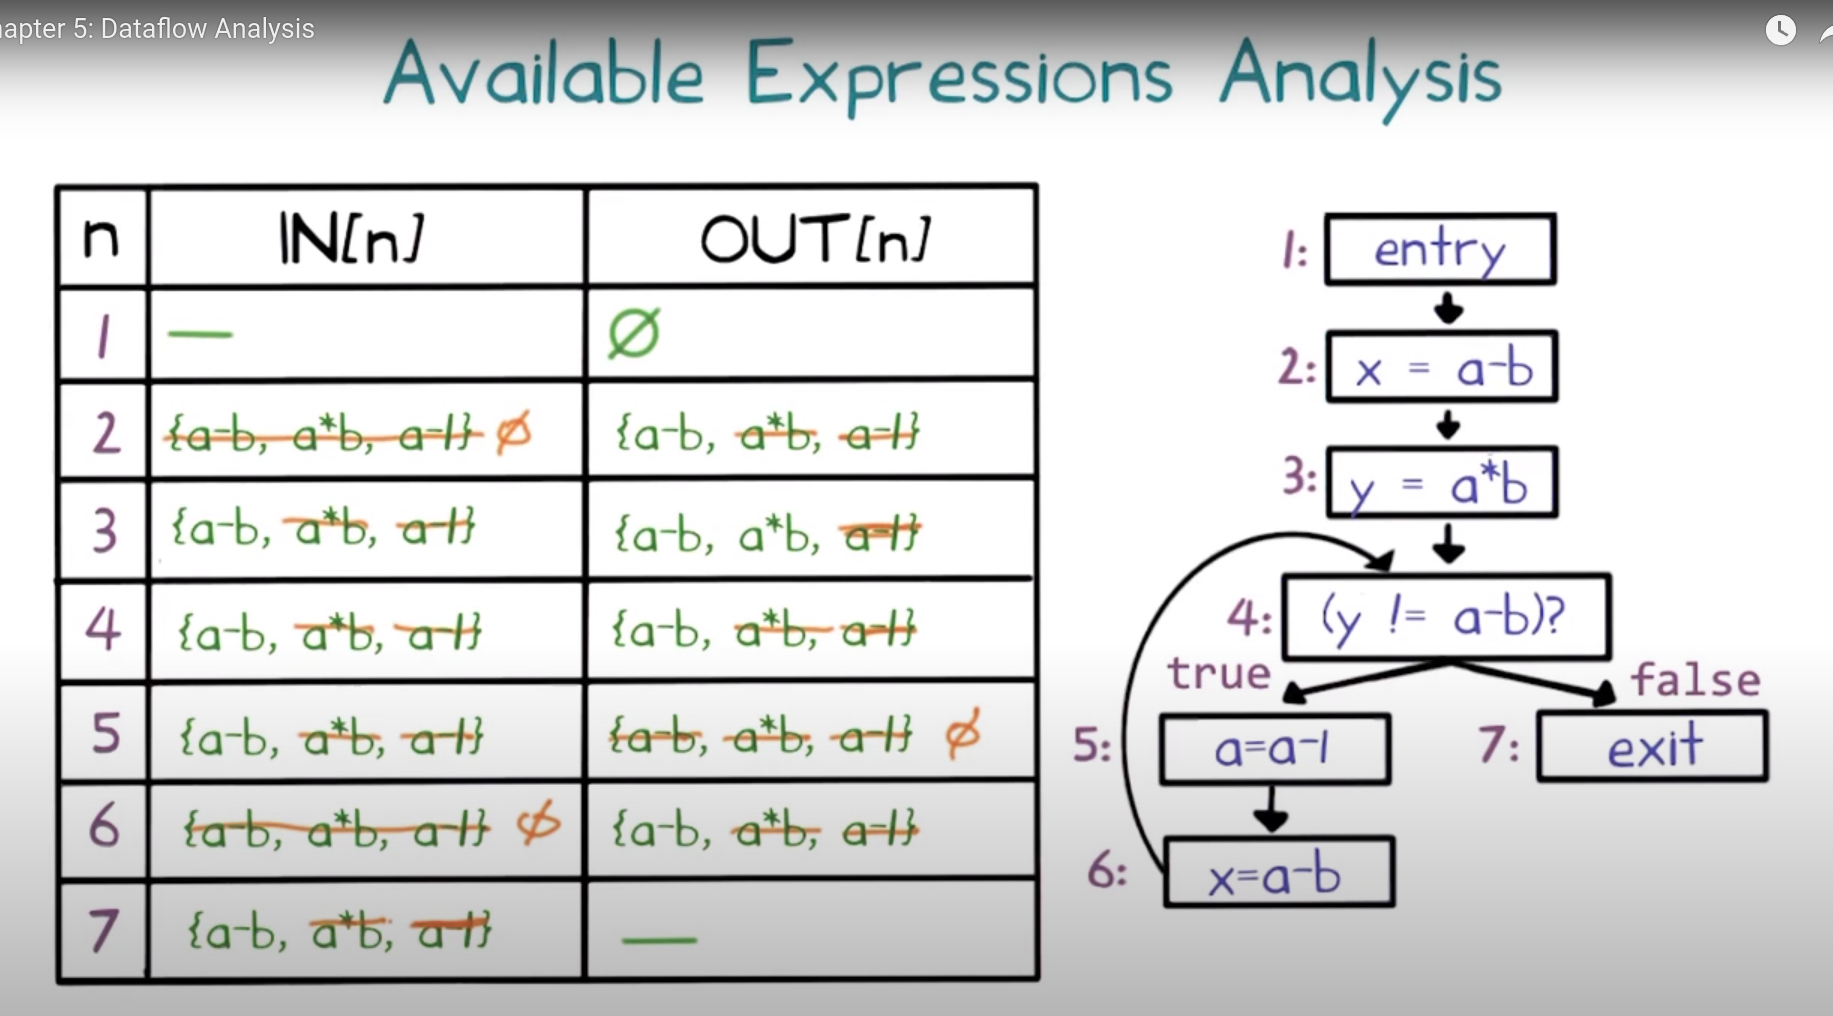 hapter 5: Dataflow Analysis
Available Expressions Analysis
n IN[n] OUT[n]
1 — ∅
2 {a-b, a*b, a-1} ∅ {a-b, a*b, a-1}
3 {a-b, a*b, a-1} {a-b, a*b, a-1}
4 {a-b, a*b, a-1} {a-b, a*b, a-1}
5 {a-b, a*b, a-1} {a-b, a*b, a-1} ∅
6 {a-b, a*b, a-1} ∅ {a-b, a*b, a-1}
7 {a-b, a*b, a-1} —
1: entry
2: x = a-b
3: y = a*b
4: (y != a-b)?
true false
5: a=a-1 7: exit
6: x=a-b